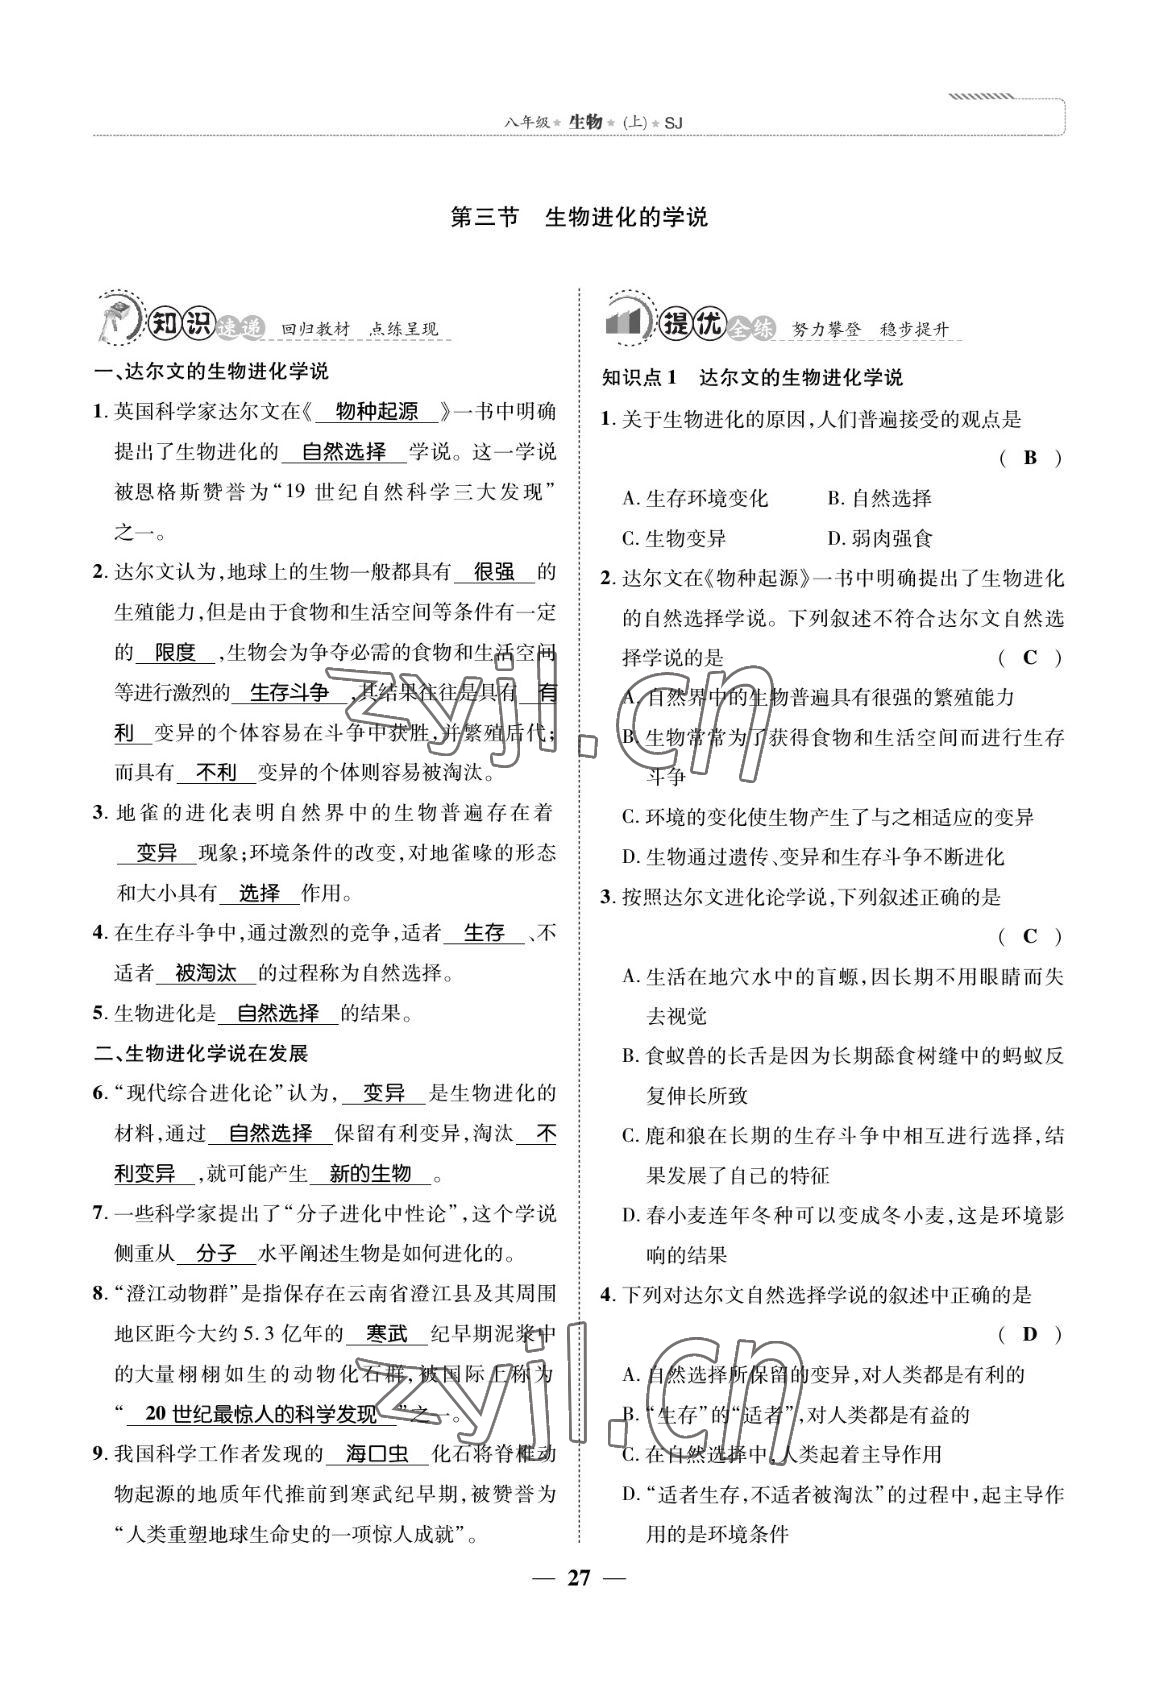 八年级★生物★(上)★SJ
第三节　生物进化的学说
知识速递　回归教材　点练呈现
一、达尔文的生物进化学说
1. 英国科学家达尔文在《 物种起源 》一书中明确
提出了生物进化的 自然选择 学说。这一学说
被恩格斯赞誉为“19 世纪自然科学三大发现”
之一。
2. 达尔文认为,地球上的生物一般都具有 很强 的
生殖能力,但是由于食物和生活空间等条件有一定
的 限度 ,生物会为争夺必需的食物和生活空间
等进行激烈的 生存斗争 ,其结果往往是具有 有
利 变异的个体容易在斗争中获胜,并繁殖后代;
而具有 不利 变异的个体则容易被淘汰。
3. 地雀的进化表明自然界中的生物普遍存在着
变异 现象;环境条件的改变,对地雀喙的形态
和大小具有 选择 作用。
4. 在生存斗争中,通过激烈的竞争,适者 生存 、不
适者 被淘汰 的过程称为自然选择。
5. 生物进化是 自然选择 的结果。
二、生物进化学说在发展
6. “现代综合进化论”认为, 变异 是生物进化的
材料,通过 自然选择 保留有利变异,淘汰 不
利变异 ,就可能产生 新的生物 。
7. 一些科学家提出了“分子进化中性论”,这个学说
侧重从 分子 水平阐述生物是如何进化的。
8. “澄江动物群”是指保存在云南省澄江县及其周围
地区距今大约 5.3 亿年的 寒武 纪早期泥浆中
的大量栩栩如生的动物化石群,被国际上称为
“ 20 世纪最惊人的科学发现 ”之一。
9. 我国科学工作者发现的 海口虫 化石将脊椎动
物起源的地质年代推前到寒武纪早期,被赞誉为
“人类重塑地球生命史的一项惊人成就”。
提优全练　努力攀登　稳步提升
知识点 1　达尔文的生物进化学说
1. 关于生物进化的原因,人们普遍接受的观点是
( B )
A. 生存环境变化　B. 自然选择
C. 生物变异　D. 弱肉强食
2. 达尔文在《物种起源》一书中明确提出了生物进化
的自然选择学说。下列叙述不符合达尔文自然选
择学说的是 ( C )
A. 自然界中的生物普遍具有很强的繁殖能力
B. 生物常常为了获得食物和生活空间而进行生存
斗争
C. 环境的变化使生物产生了与之相适应的变异
D. 生物通过遗传、变异和生存斗争不断进化
3. 按照达尔文进化论学说,下列叙述正确的是
( C )
A. 生活在地穴水中的盲螈,因长期不用眼睛而失
去视觉
B. 食蚁兽的长舌是因为长期舔食树缝中的蚂蚁反
复伸长所致
C. 鹿和狼在长期的生存斗争中相互进行选择,结
果发展了自己的特征
D. 春小麦连年冬种可以变成冬小麦,这是环境影
响的结果
4. 下列对达尔文自然选择学说的叙述中正确的是
( D )
A. 自然选择所保留的变异,对人类都是有利的
B. “生存”的“适者”,对人类都是有益的
C. 在自然选择中,人类起着主导作用
D. “适者生存,不适者被淘汰”的过程中,起主导作
用的是环境条件
— 27 —
zyjl.cn
zyjl.cn